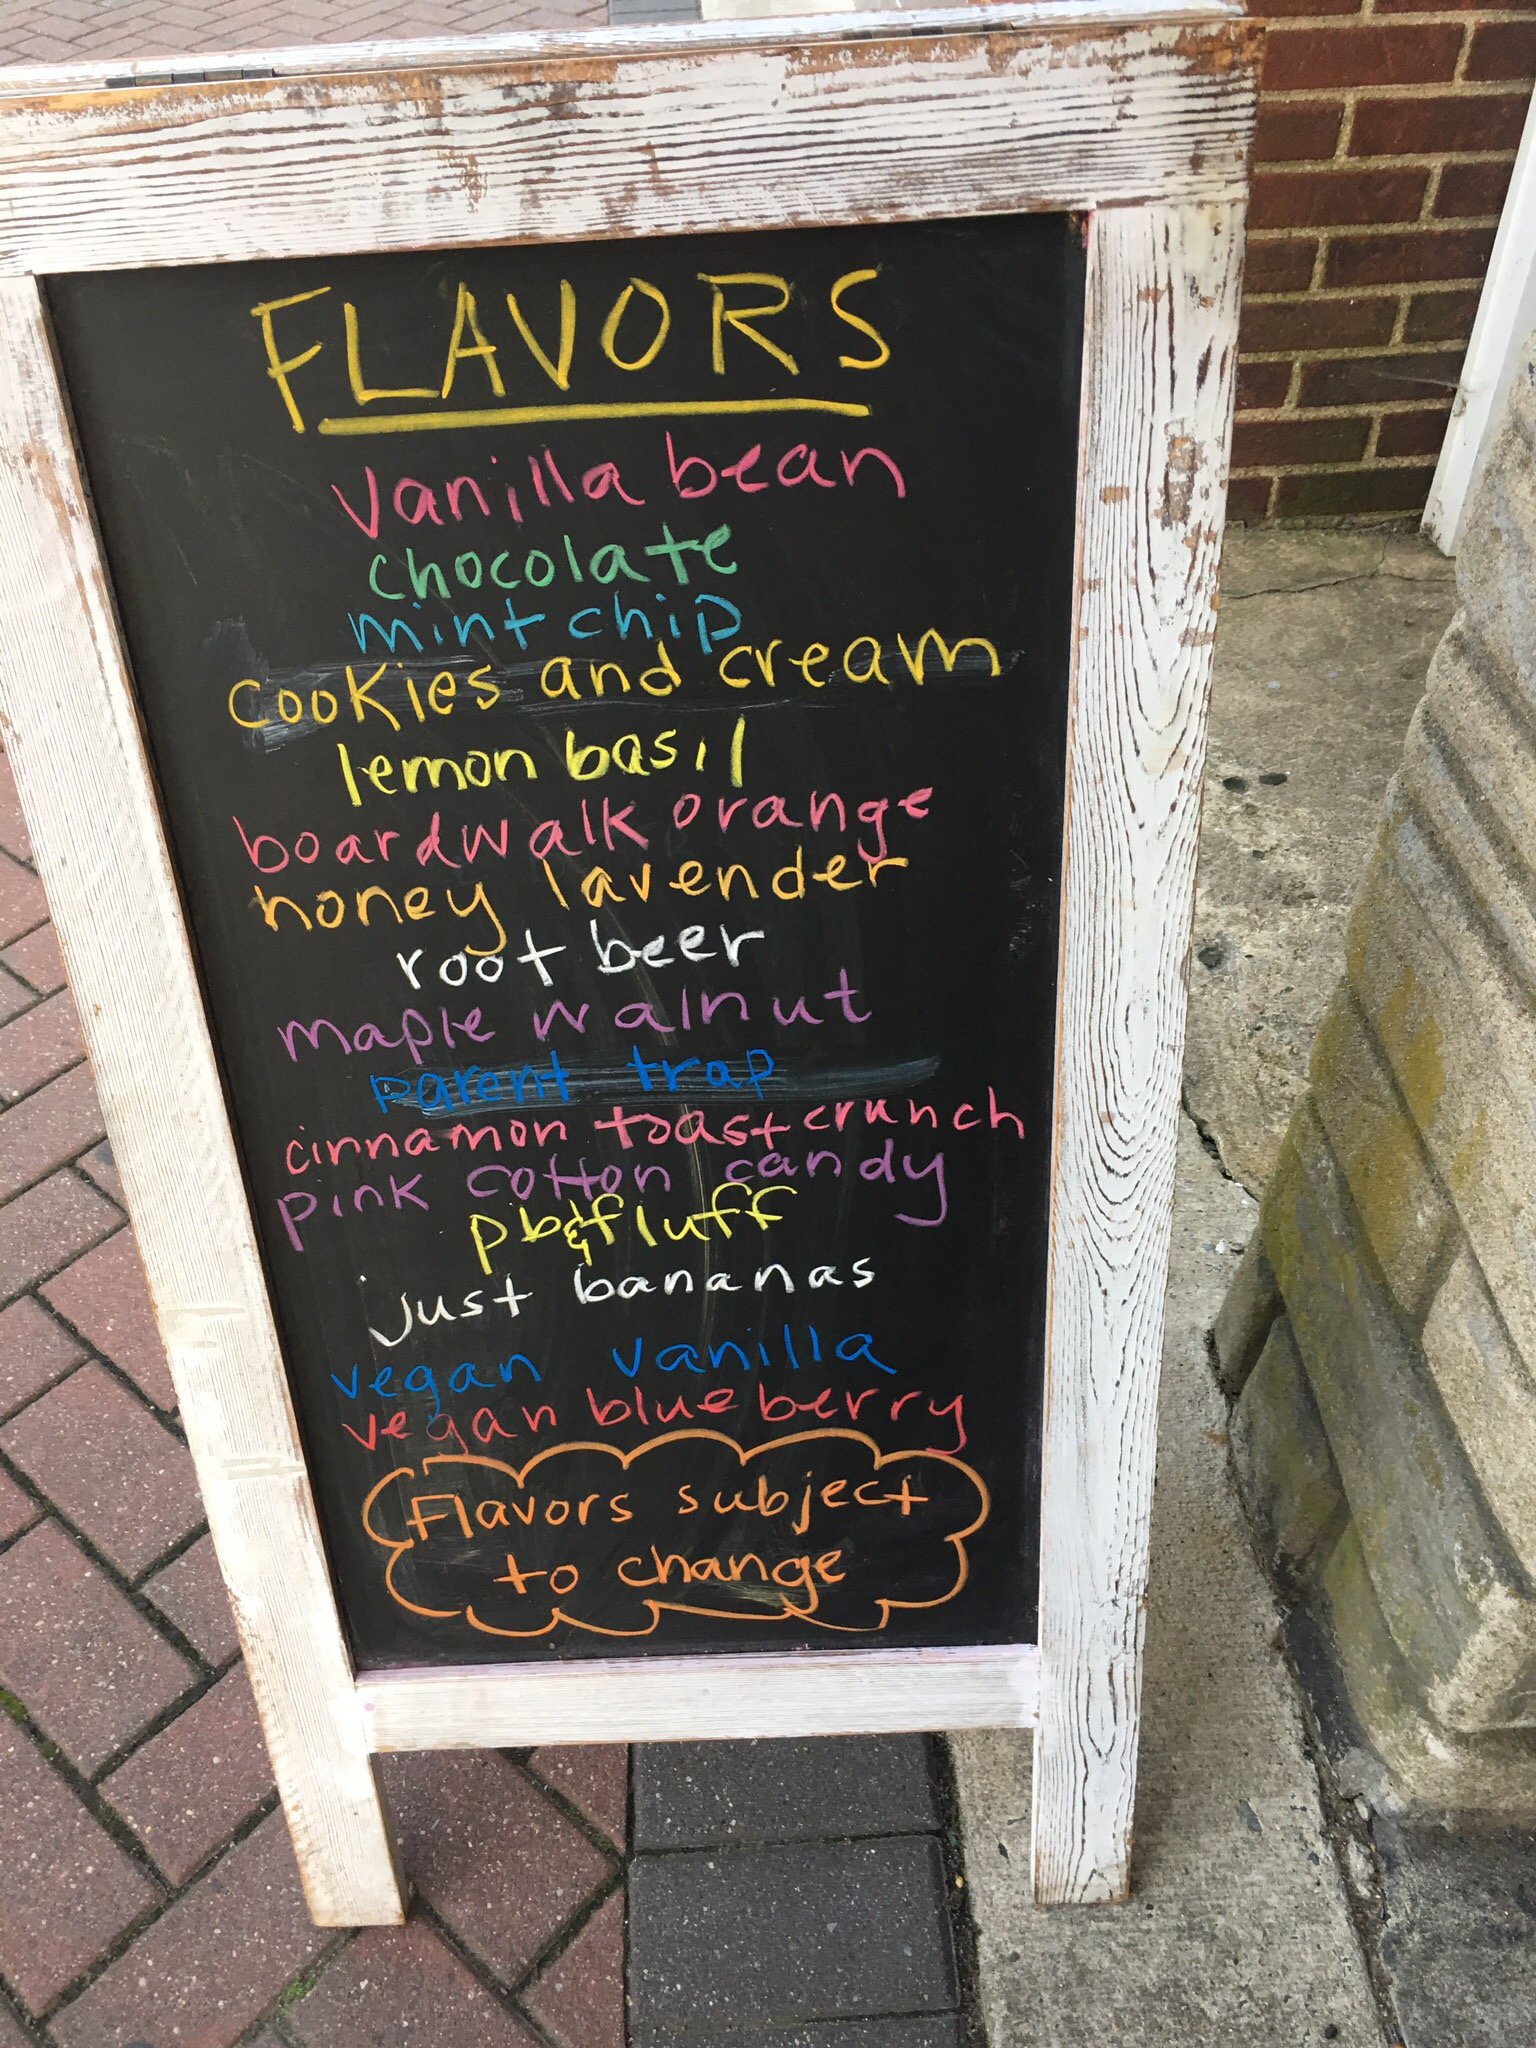 FLAVORS
vanilla bean
chocolate
mint chip
cookies and cream
lemon basil
boardwalk orange
honey lavender
root beer
maple walnut
parent trap
cinnamon toast crunch
pink cotton candy
pb&fluff
just bananas
vegan vanilla
vegan blueberry
Flavors subject
to change